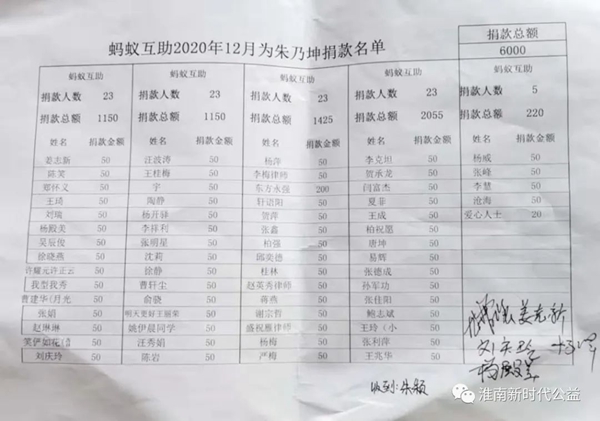 蚂蚁互助2020年12月为朱乃坤捐款名单 捐款总额
6000
蚂蚁互助 蚂蚁互助 蚂蚁互助 蚂蚁互助 蚂蚁互助
捐款人数 23 捐款人数 23 捐款人数 23 捐款人数 23 捐款人数 5
捐款总额 1150 捐款总额 1150 捐款总额 1425 捐款总额 2055 捐款总额 220
姓名 捐款金额 姓名 捐款金额 姓名 捐款金额 姓名 捐款金额 姓名 捐款金额
姜志新 50 汪波涛 50 杨萍 50 李克坦 50 杨威 50
陈芳 50 王桂梅 50 李梅律师 50 贺承龙 50 张峰 50
郑怀义 50 宇 50 东方永强 200 闫富杰 50 李慧 50
王琦 50 陶静 50 轩语阳 50 夏菲 50 沧海 50
刘瑞 50 杨开驿 50 贺萍 50 王成 50 爱心人士 20
杨殿美 50 李祥利 50 张鑫 50 柏祝愿 50
吴辰俊 50 张明星 50 柏强 50 唐坤 50
徐晓燕 50 沈莉 50 邱奕德 50 易辉 50
许耀允许正云 50 徐静 50 桂林 50 张德成 50
我型我秀 50 曹轩尘 50 赵英秀律师 50 孙军功 50
曹建华(月光 50 俞骁 50 蒋燕 50 张佳阳 50
张娟 50 明天更好王丽荣 50 谢宗哲 50 鲍志斌 50
赵琳琳 50 姚伊晨同学 50 盛祝雁律师 50 王玲（小 50
笑伊如花(首 50 汪秀娟 50 杨梅 50 张利萍 50
刘庆玲 50 陈岩 50 严梅 50 王兆华 50
姜志新
刘庆玲
杨殿美
收到: 朱颖
淮南新时代公益